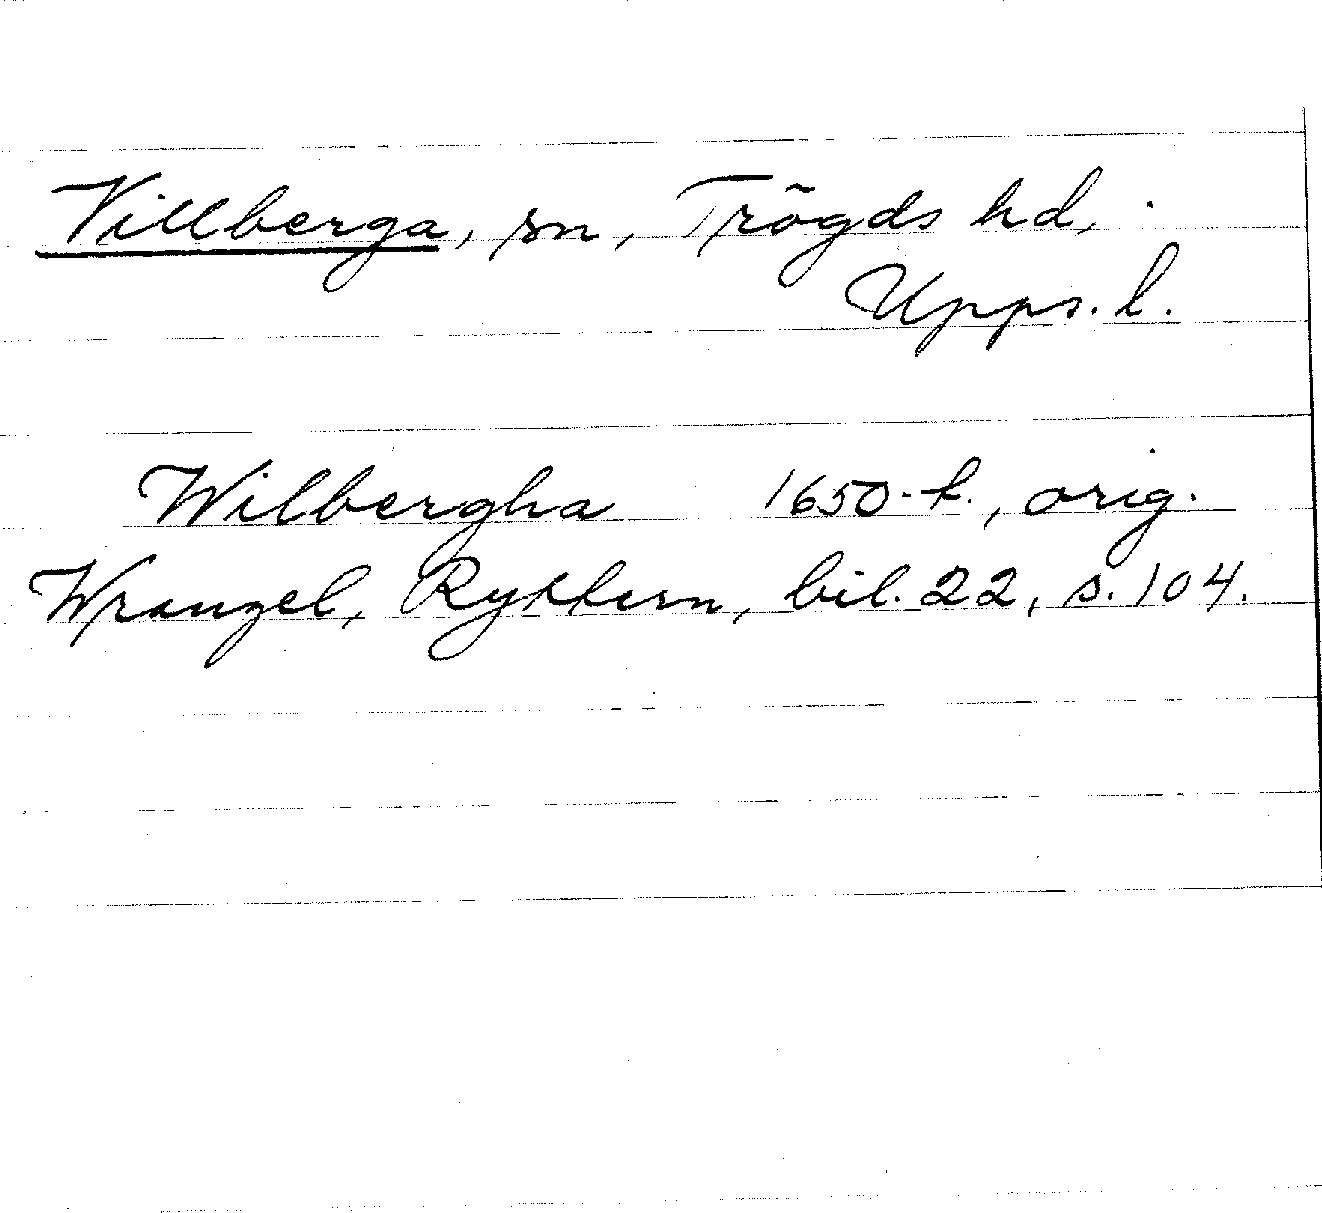 Villberga, sn, Trögds hd,
Upps. l.
Wilbergha 1650-t., orig.
Wrangel, Ryttern, bil. 22, s. 104.